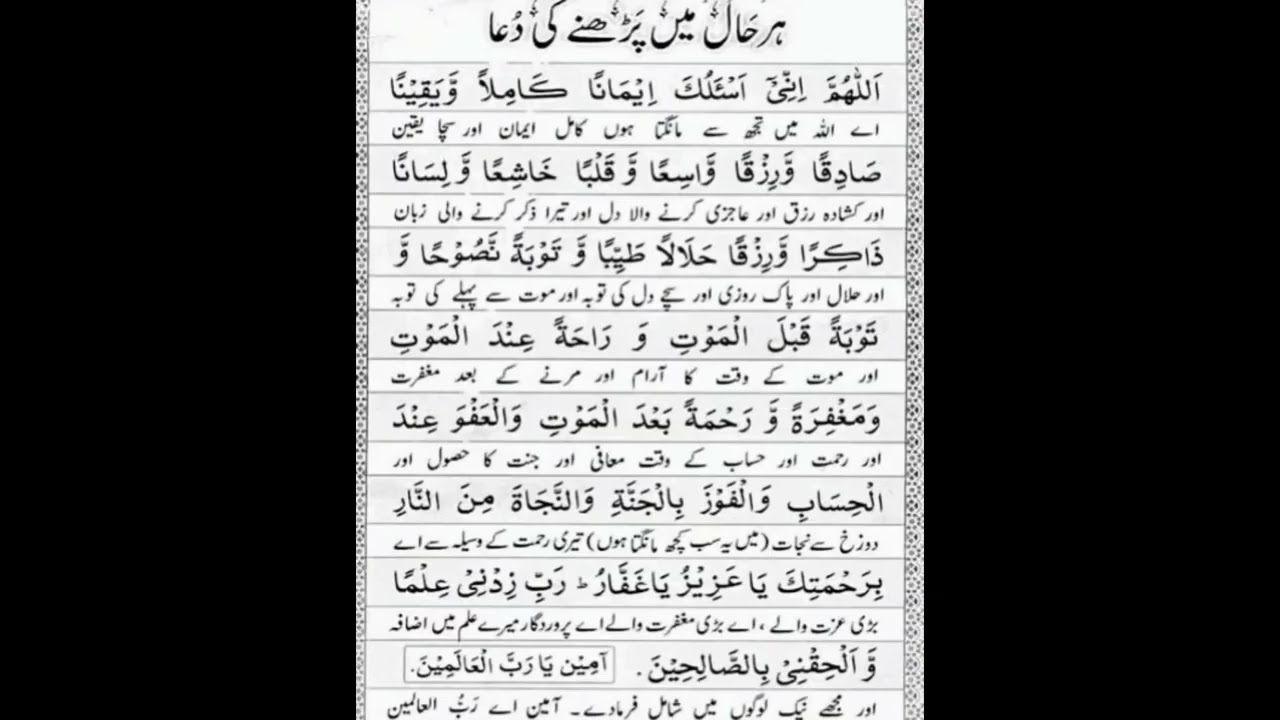 ہر حال میں پڑھنے کی دُعا
اَللّٰهُمَّ اِنِّیْٓ اَسْئَلُكَ اِيْمَانًا كَامِلاً وَّيَقِيْنًا
اے اللہ میں تجھ سے مانگتا ہوں کامل ایمان اور سچا یقین
صَادِقًا وَّرِزْقًا وَّاسِعًا وَّ قَلْبًا خَاشِعًا وَّ لِسَانًا
اور کشادہ رزق اور عاجزی کرنے والا دل اور تیرا ذکر کرنے والی زبان
ذَاكِرًا وَّرِزْقًا حَلَالاً طَيِّبًا وَّ تَوْبَةً نَّصُوْحًا وَّ
اور حلال اور پاک روزی اور سچے دل کی توبہ اور موت سے پہلے کی توبہ
تَوْبَةً قَبْلَ الْمَوْتِ وَ رَاحَةً عِنْدَ الْمَوْتِ
اور موت کے وقت کا آرام اور مرنے کے بعد مغفرت
وَمَغْفِرَةً وَّ رَحْمَةً بَعْدَ الْمَوْتِ وَالْعَفْوَ عِنْدَ
اور رحمت اور حساب کے وقت معافی اور جنت کا حصول اور
الْحِسَابِ وَالْفَوْزَ بِالْجَنَّةِ وَالنَّجَاةَ مِنَ النَّارِ
دوزخ سے نجات (میں یہ سب کچھ مانگتا ہوں) تیری رحمت کے وسیلہ سے اے
بِرَحْمَتِكَ يَا عَزِيْزُ يَاغَفَّارُ ط رَبِّ زِدْنِیْ عِلْمًا
بڑی عزت والے ، اے بڑی مغفرت والے اے پروردگار میرے علم میں اضافہ
وَّ اَلْحِقْنِیْ بِالصَّالِحِيْنَ . اٰمِيْن يَا رَبَّ الْعَالَمِيْنَ.
اور مجھے نیک لوگوں میں شامل فرمادے۔ آمین اے رَبُّ العالمین